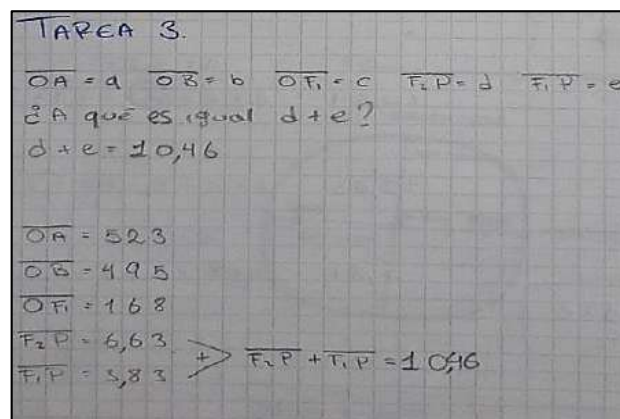 TAREA 3.
OA = a OB = b OF₁ = c F₂P = d F₁P = e
¿A qué es igual d + e?
d + e = 10,46
OA = 523
OB = 495
OF₁ = 168
F₂P = 6,63
F₁P = 3,83 + > F₂P + F₁P = 10,46